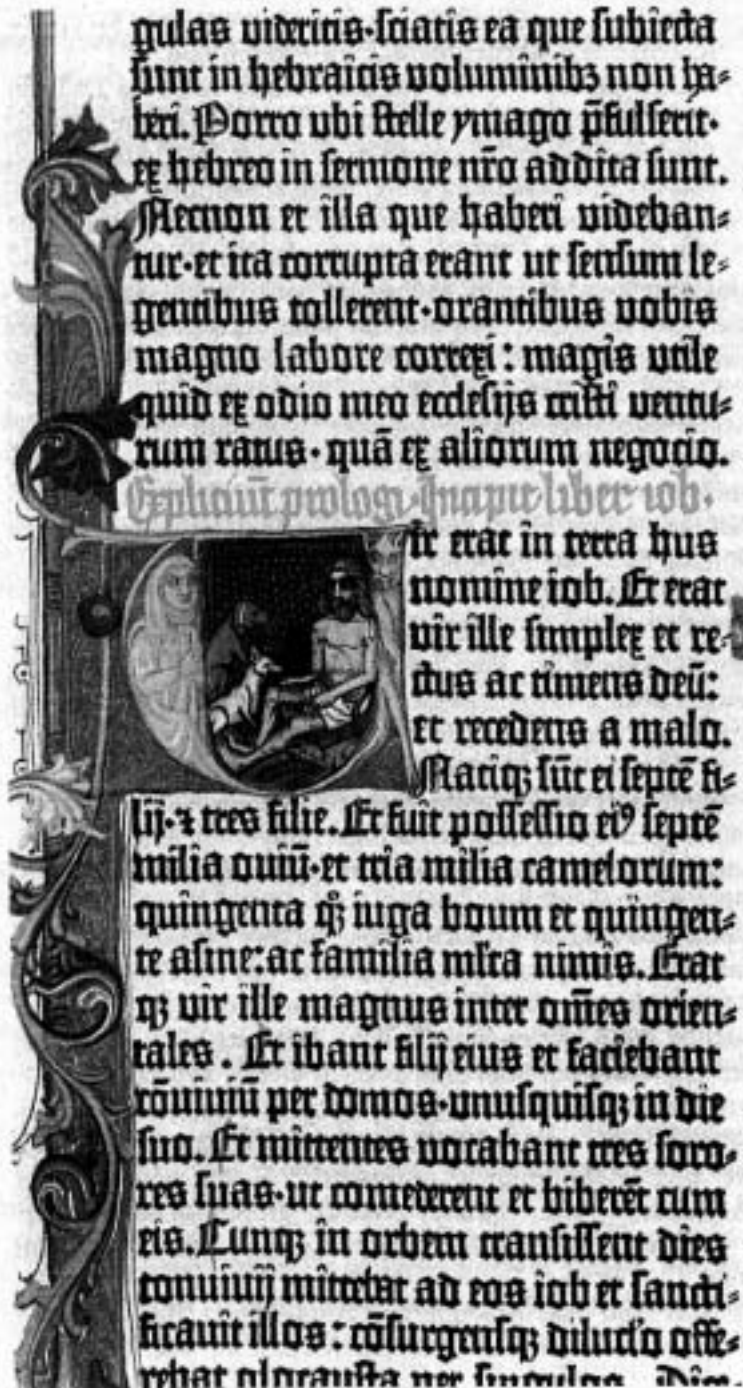 gulas videritis·sciatis ea que subiecta
sunt in hebraicis voluminibȝ non ha-
beri. Porro ubi stelle ymago p̄fulserit·
ex hebreo in sermone nr̄o addita sunt.
Necnon et illa que haberi videban-
tur·et ita corrupta erant ut sensum le-
gentibus tollerent·orantibus vobis
magno labore correxi: magis utile
quid ex odio meo ecclesijs cristi ventu-
rum ratus·quā ex aliorum negocio.
Expliciūt prologi. Incipit liber iob.
Vir erat in terra hus
nomine iob. Et erat
vir ille simplex et re-
ctus ac timens deū:
et recedens a malo.
Natiqȝ sūt ei septē fi-
lij·⁊ tres filie. Et fuit possessio eiꝰ septē
milia oviū·et tria milia camelorum:
quingenta qȝ iuga boum et quingen-
te asine: ac familia ml̄ta nimis. Erat
qȝ vir ille magnus inter om̄es orien-
tales. Et ibant filij eius et faciebant
cōviviū per domos·unusquisqȝ in die
suo. Et mittentes vocabant tres soro-
res suas·ut comederent et biberēt cum
eis. Cunqȝ in orbem transissent dies
convivij mittebat ad eos iob et sancti-
ficavit illos: cōsurgensqȝ diluclo offe-
rebat olocausta per singulos. Dice-